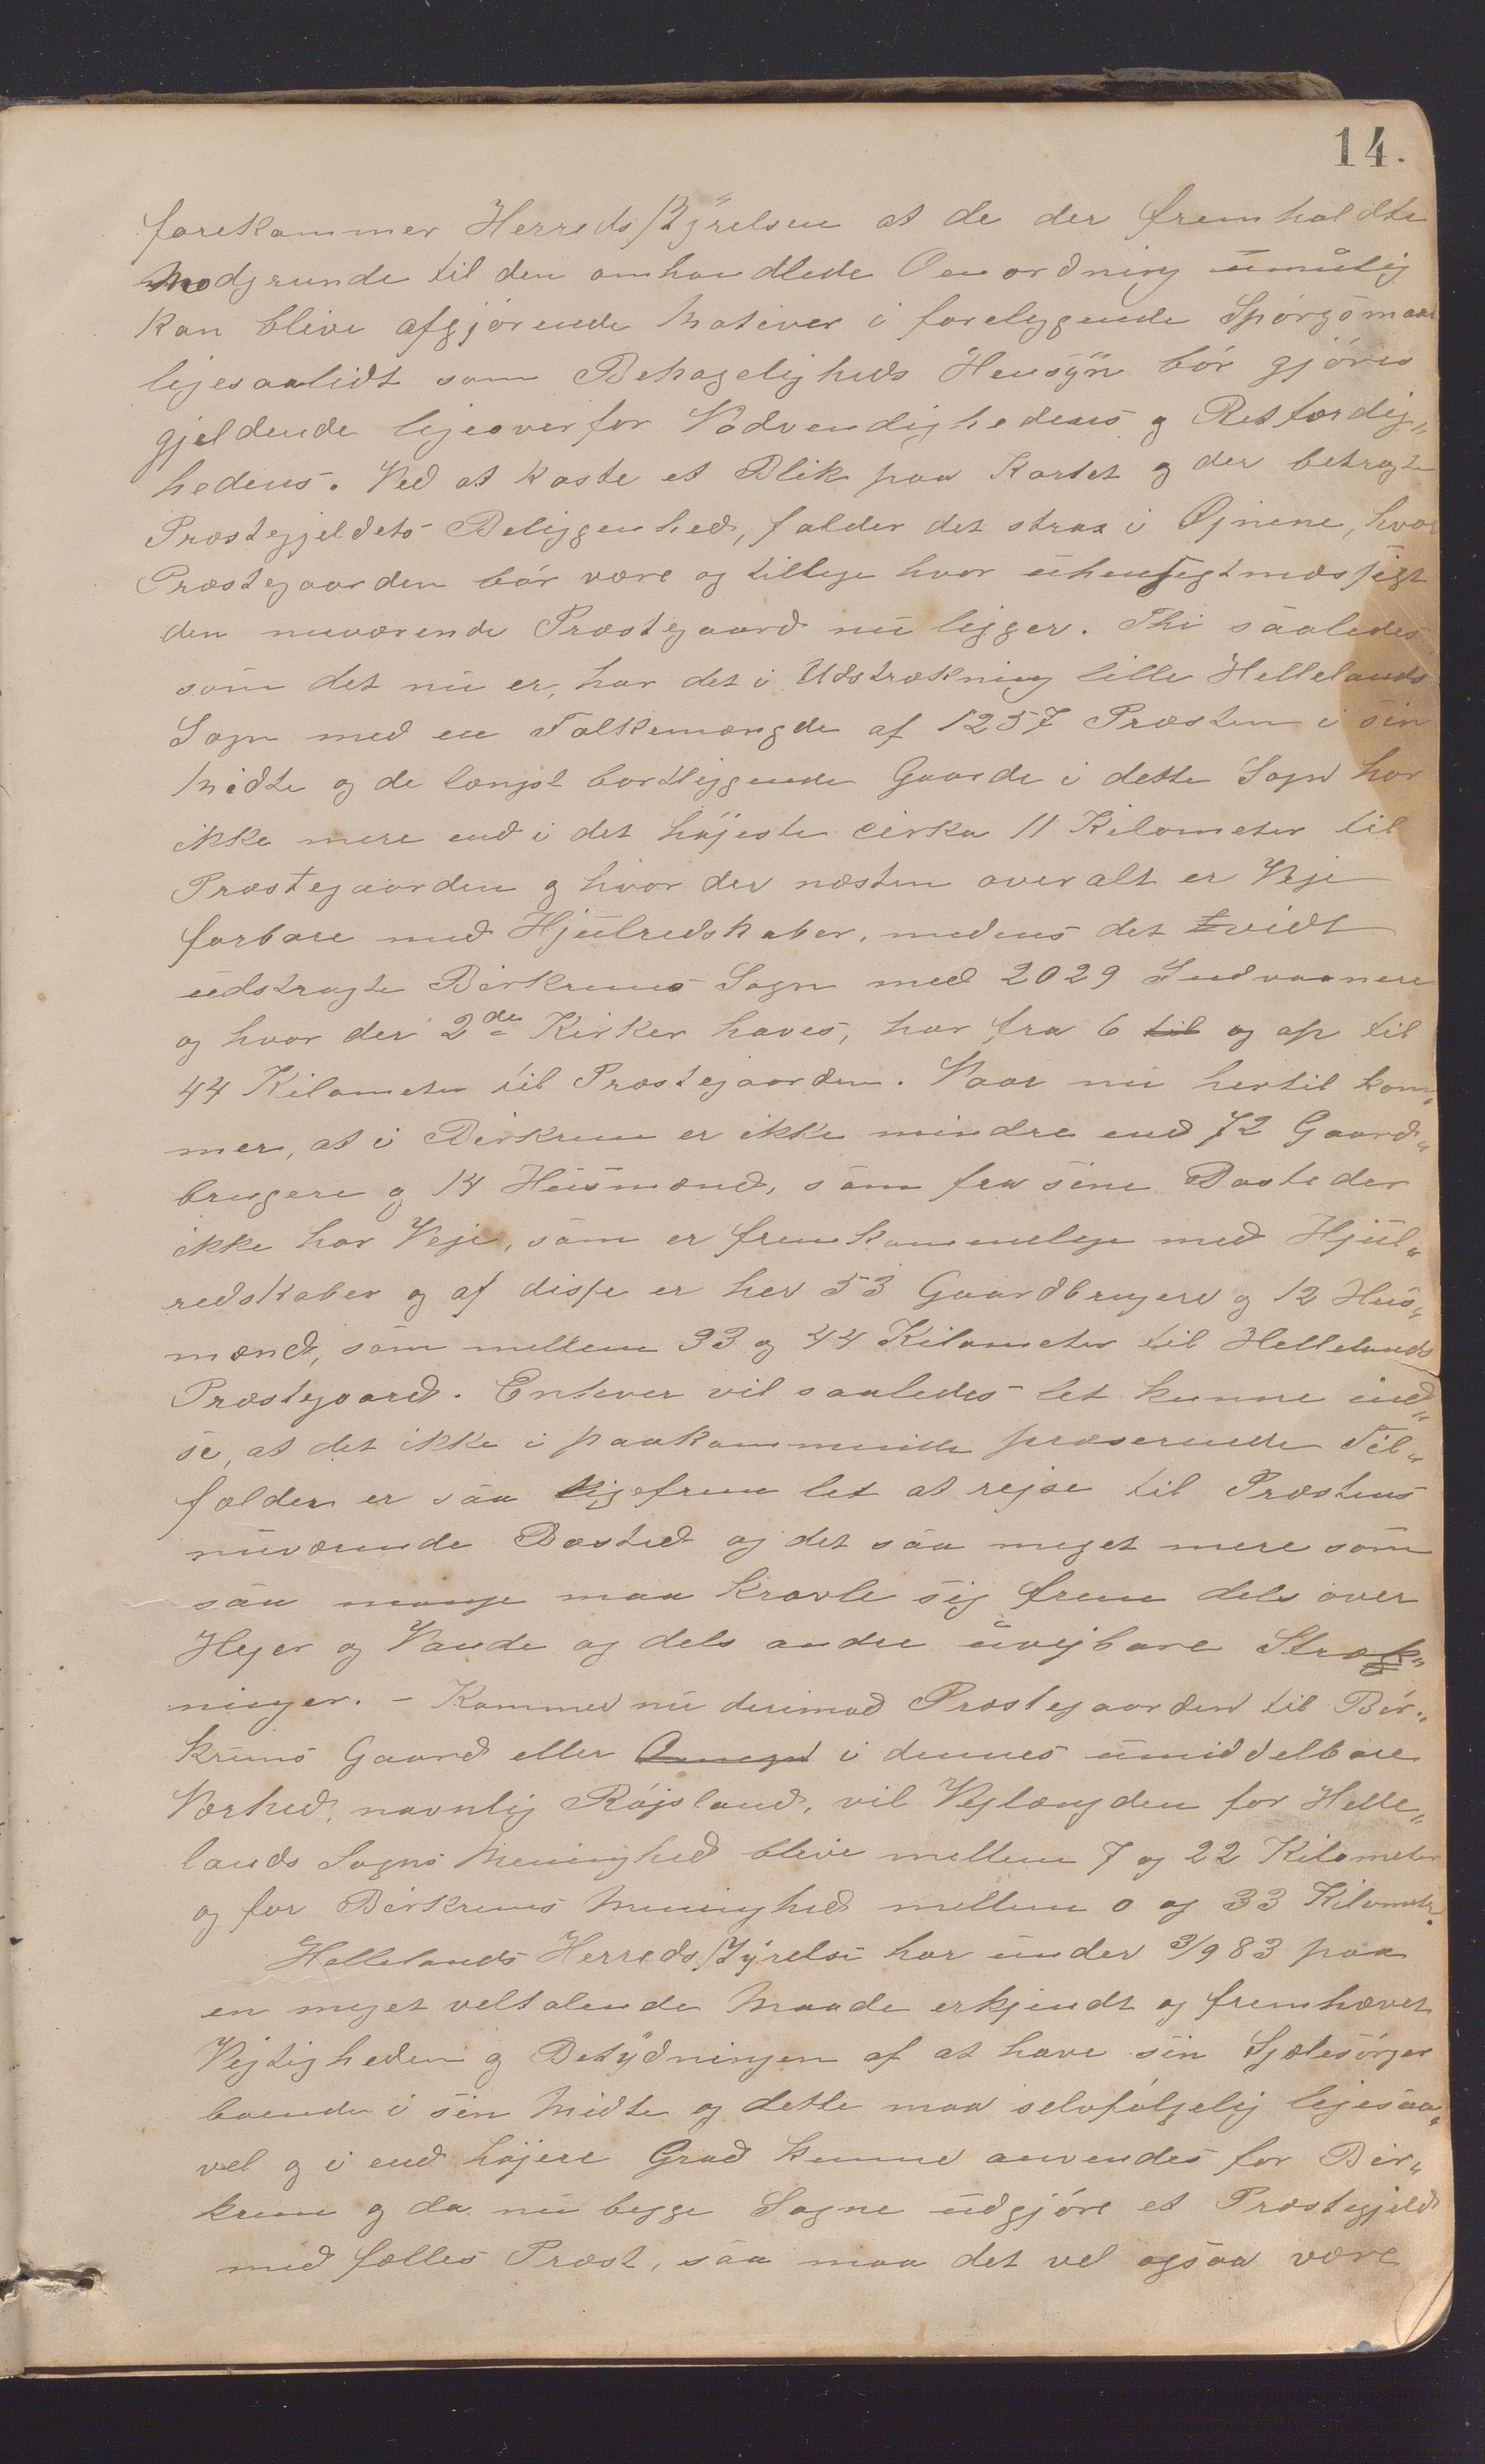 14.
forekommer Herredsstyrelsen at de der fremholdte
Modgrunde til den omhandlede Omordning umulig
kan blive afgjørende Motiver i foreliggende Spørgsmaal
ligesaalidt som Behageligheds Hensyn bør gjøres
gjeldende ligeoverfor Nødvendighedens og Retfærdig„
hedens. Ved at kaste et Blik paa Kartet og der betragte
Præstegjeldets Beliggenhed, falder det strax i Øjnene, hvor
Præstegaarden bør være og tillige hvor uhensigtmæssigt
den nuværende Præstegaard nu ligger. Thi saaledes
som det nu er, har det i Udstrækning lille Hellelands
Sogn med en Folkemængde af 1257 Præsten i sin
Midte og de længst bortliggende Gaarde i dette Sogn har
ikke mere end i det højeste cirka 11 Kilometer til
Præstegaarden og hvor der næsten overalt er Veje
farbare med Hjulredskaber, medens det vidt
udstragte Birkrems Sogn med 2029 Indvaanere
og hvor der 2de Kirker haves, har fra 6 til og op til
44 Kilometer til Præstegaarden. Naar nu hertil kom„
mer, at i Birkrem er ikke mindre end 72 Gaard„
brugere og 14 Husmænd, som fra sine Bosteder
ikke har Veje, som er fremkommelige med Hjul„
redskaber og af disse er her 53 Gaardbrugere og 12 Hus„
mænd, som mellem 33 og 44 Kilometer til Hellelands
Præstegaard. Enhver vil saaledes let kunne ind„
se, at det ikke i paakommende præserende Til„
fælder er saa ligefrem let at rejse til Præstens
nuværende Bosted og det saa meget mere som
saa mange maa kravle sig frem dels over
Hejer og Vande og dels andre uvejbare Stræk„
ninger. - Kommer nu derimod Præstegaarden til Bir„
krems Gaard eller Omegn i dennes umiddelbare
Nærhed, navnlig Røjsland, vil Vejlængden for Helle„
lands Sogns Menighed blive mellem 7 og 22 Kilometer
og for Birkrems Menighed mellem 0 og 33 Kilometr.
Hellelands Herredsstyrelse har under 3/9 83 paa
en meget veltalende Maade erkjendt og fremhævet
Vigtigheden og Betydningen af at have sin Sjælesørger
boende i sin Midte og dette maa selvfølgelig ligesaa„
vel og i end højere Grad kunne anvendes for Bir„
krem og da nu begge Sogne udgjøre et Præstegjeld
med fælles Præst, saa maa det vel ogsaa være